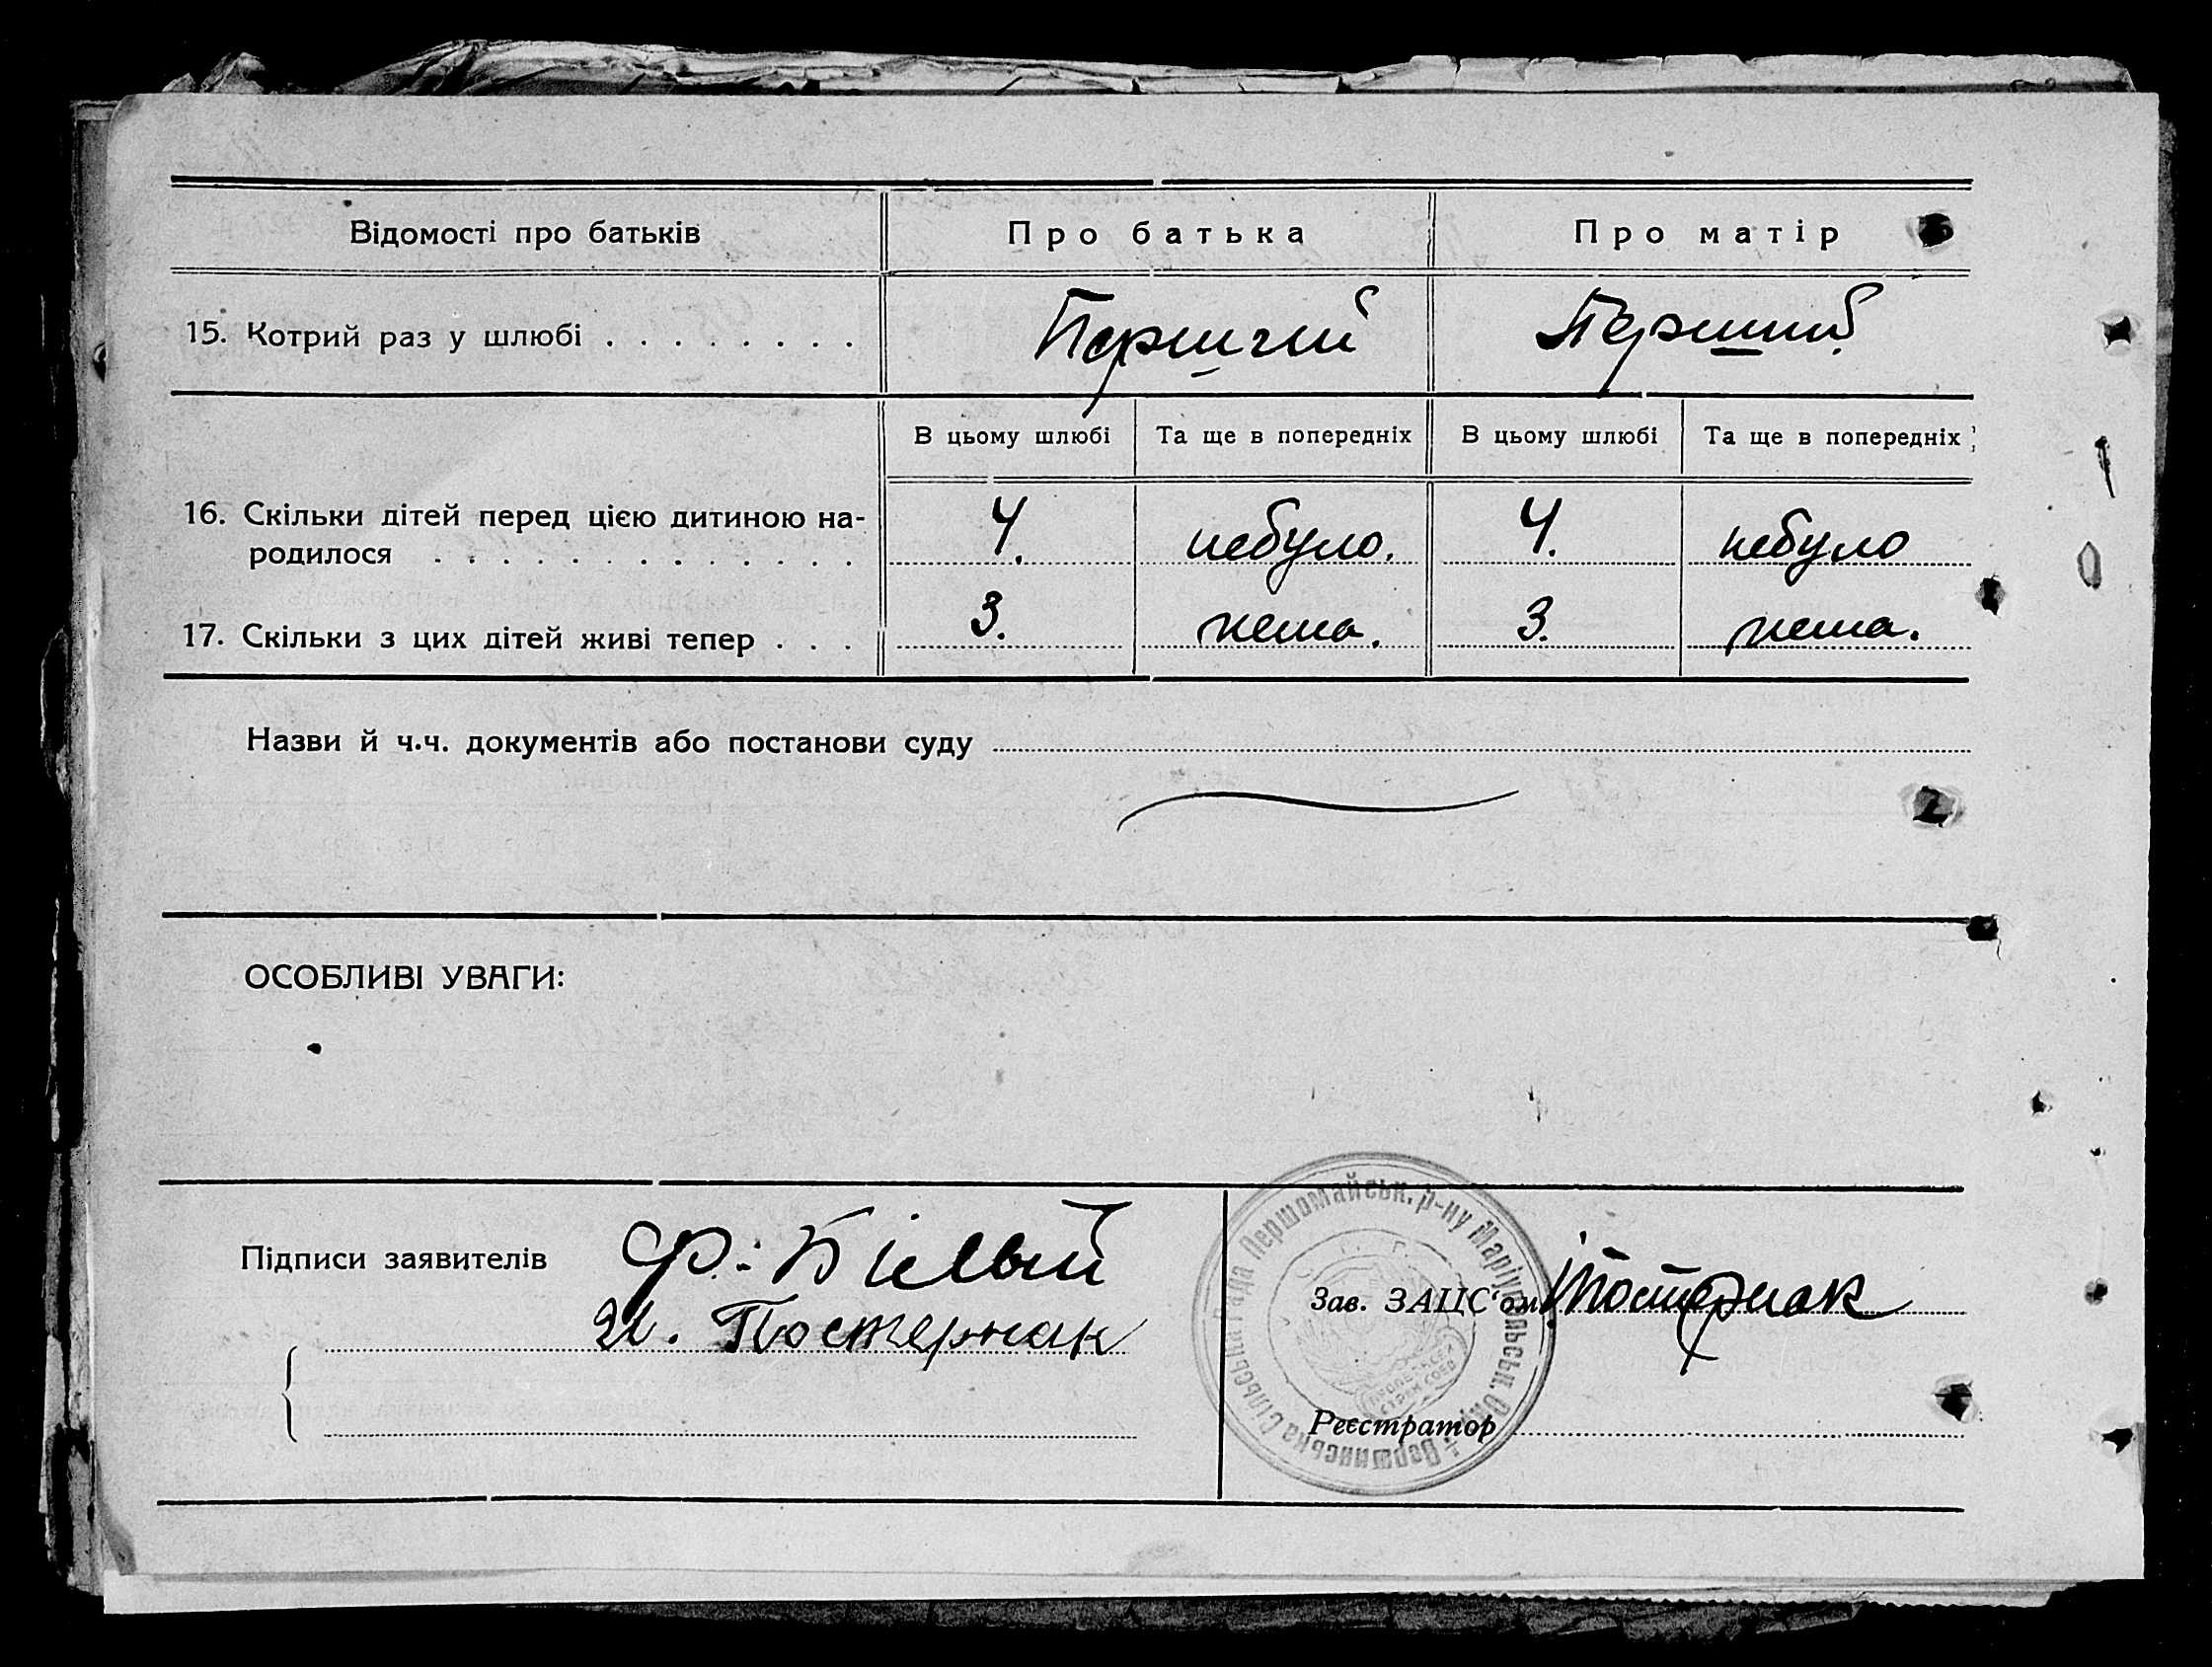 Відомості про батьків Про батька Про матір
15. Котрий раз у шлюбі . . . . . . . . Перший Перший
В цьому шлюбі Та ще в попередніх В цьому шлюбі Та ще в попередніх
16. Скільки дітей перед цією дитиною на-
родилося . . . . . . . . . . . . . 4. небуло. 4. небуло
17. Скільки з цих дітей живі тепер . . . 3. нема. 3. нема.
Назви й ч.ч. документів або постанови суду
ОСОБЛИВІ УВАГИ:
Підписи заявителів Ф. Білый
И. Постернак
Зав. ЗАЦС‘ом Постернак
Реєстратор
Сільська Рада Першомайськ. р-ну Маріупільськ. Окр.